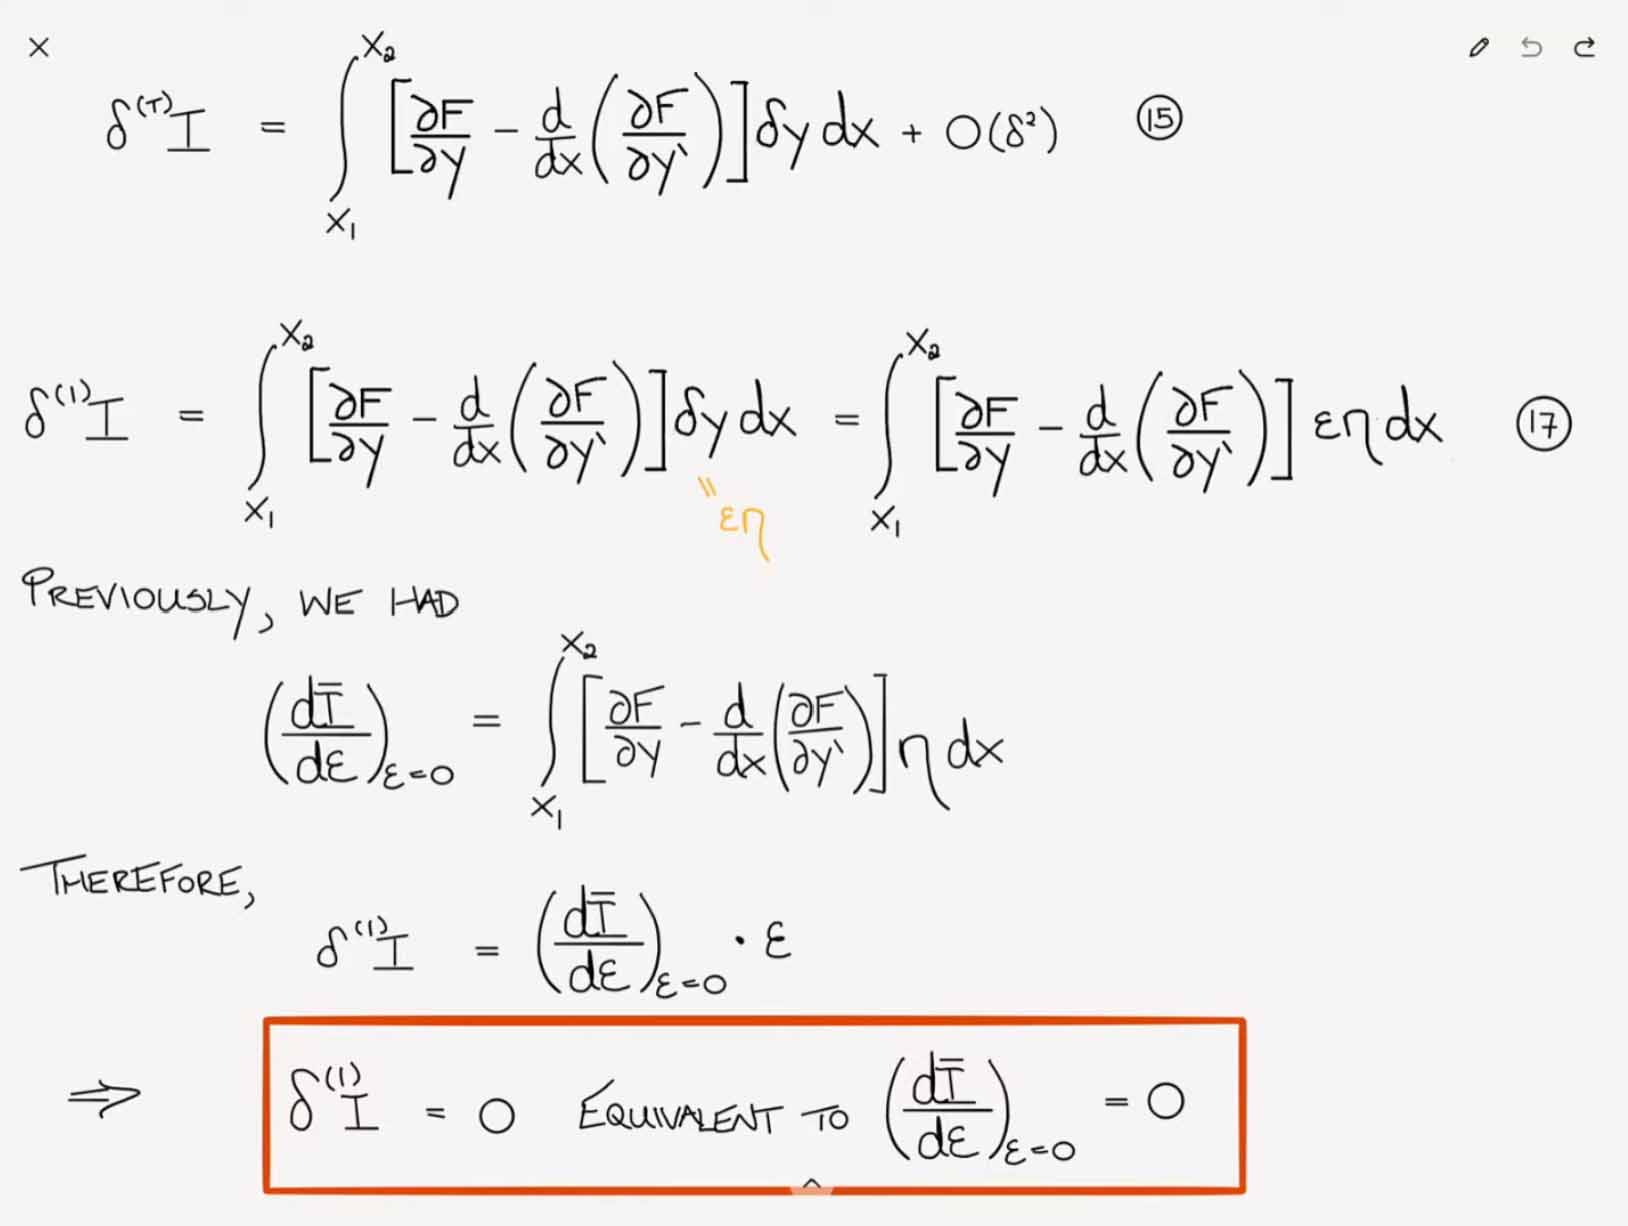 δ⁽ᵀ⁾I = ∫_{x₁}^{x₂} [∂F/∂y − d/dx(∂F/∂y`)] δy dx + O(δ²) ⑮
δ⁽¹⁾I = ∫_{x₁}^{x₂} [∂F/∂y − d/dx(∂F/∂y`)] δy dx = ∫_{x₁}^{x₂} [∂F/∂y − d/dx(∂F/∂y`)] εη dx ⑰
" εη
PREVIOUSLY, WE HAD
(dĪ/dε)_{ε=0} = ∫_{x₁}^{x₂} [∂F/∂y − d/dx(∂F/∂y`)] η dx
THEREFORE,
δ⁽¹⁾I = (dĪ/dε)_{ε=0} · ε
⇒ δ⁽¹⁾I = 0 EQUIVALENT TO (dĪ/dε)_{ε=0} = 0